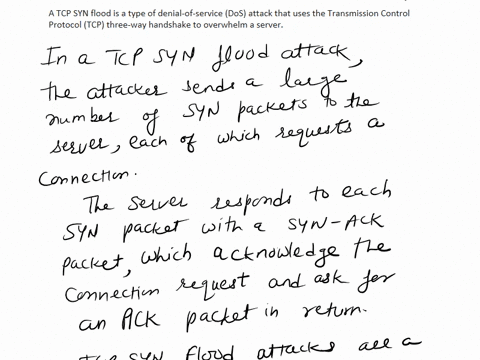 A TCP SYN flood is a type of denial-of-service (DoS) attack that uses the Transmission Control
Protocol (TCP) three-way handshake to overwhelm a server.
In a TCP SYN flood attack,
the attacker sends a large
number of SYN packets to the
server, each of which requests a
Connection.
The server responds to each
SYN packet with a SYN-ACK
packet, which acknowledge the
Connection request and ask for
an ACK packet in return.
TCP SYN flood attacks are a